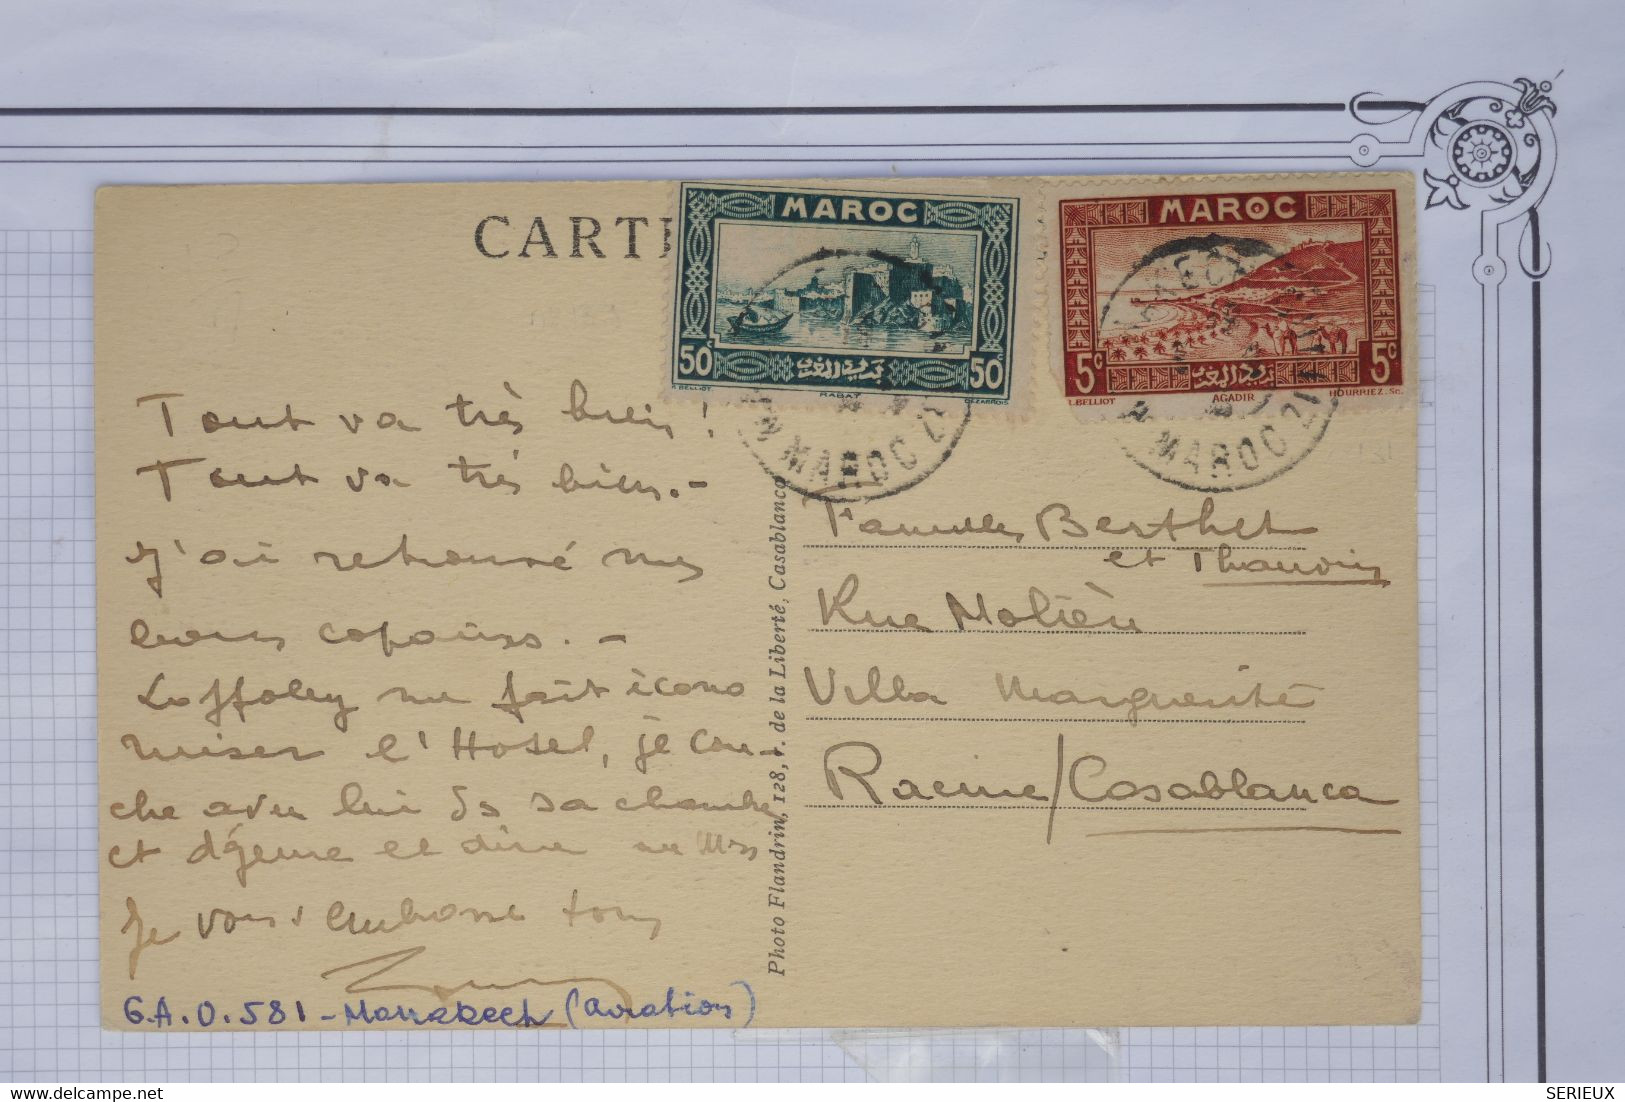 CARTE
MAROC
50c 50c
RABAT
MAROC
5c 5c
L.BELLIOT AGADIR HOURRIEZ.Sc.
MAROC
MAROC
Tout va très bien!
Tout va très bien.-
J'ai retrouvé mes
bons copains.-
Loffoley me fait écono
miser l'Hotel, je cou-
che avec lui ds sa chambre
et déjeune et dine au Mess
Je vous embrasse tous
G.A.O.581-Marrakech (aviation)
Photo Flandrin, 128, r. de la Liberté, Casablanca
Famille Berthet
et Thauvin
Rue Molière
Villa Marguerite
Racine/Casablanca
www.delcampe.net
SERIEUX